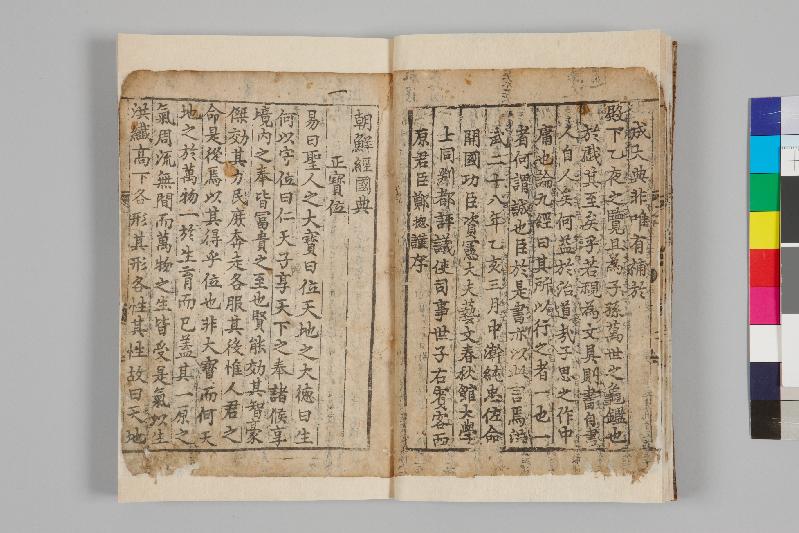 成大典非唯有補於
殿下乙夜之覽且為子孫萬世之龜鑑也
於戲其至矣乎若視為文具則書自書
人自人矣何益於治道哉子思之作中
庸也論九經曰其所以行之者一也一
者何謂誠也臣於是書亦以此言焉洪
武二十八年乙亥三月中澣純忠佐命
開國功臣資憲大夫藝文春秋館大學
士同判都評議使司事世子右賓客西
原君臣鄭摠謹序
朝鮮經國典
一
正寶位
易曰聖人之大寶曰位天地之大德曰生
何以守位曰仁天子享天下之奉諸侯享
境內之奉皆富貴之至也賢能効其智豪
傑効其力民庶奔走各服其役惟人君之
命是從焉以其得乎位也非大寶而何天
地之於萬物一於生育而已蓋其一原之
氣周流無間而萬物之生皆受是氣以生
洪纖高下各形其形各性其性故曰天地